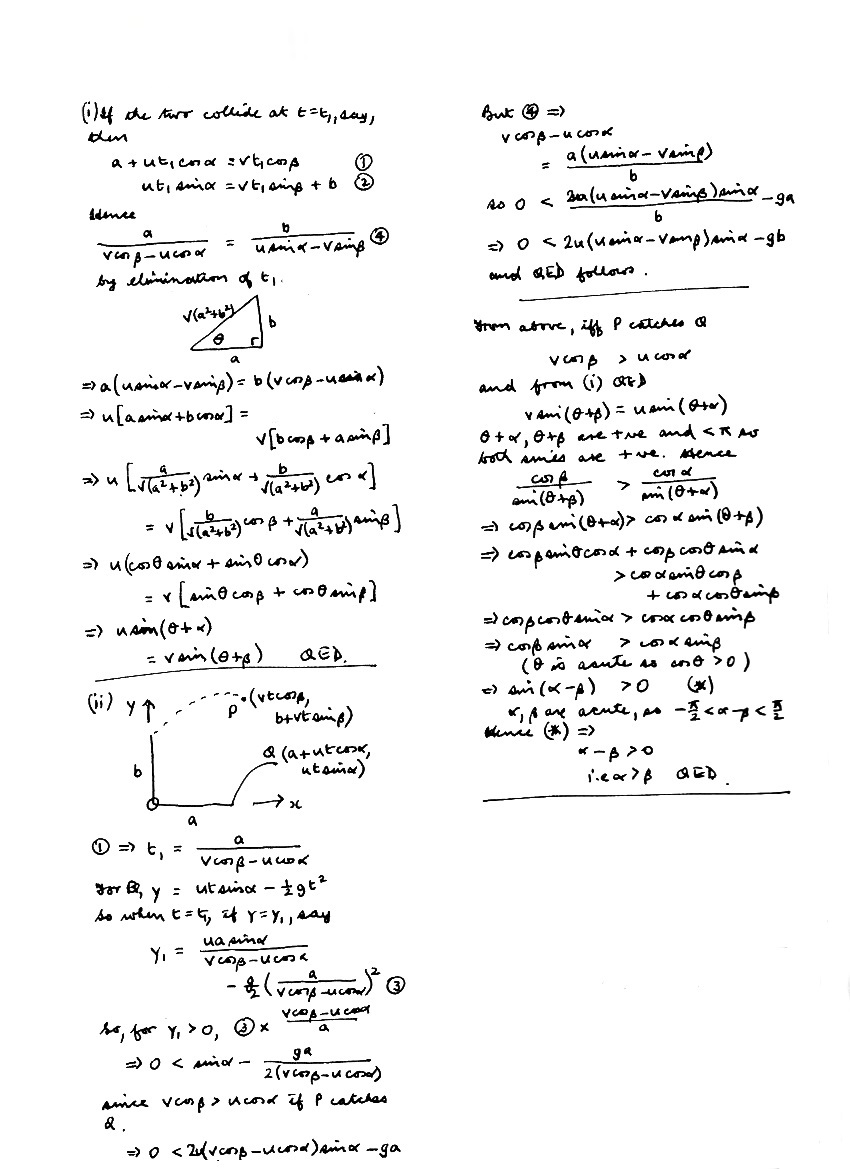 (i) If the two collide at t=t₁, say,
then
a + ut₁ cosα = vt₁cosβ ①
ut₁ sinα = vt₁ sinβ + b ②
Hence
a/(vcosβ-ucosα) = b/(usinα-vsinβ) ④
by elimination of t₁.
√(a²+b²)
b
θ
a
⇒ a(usinα-vsinβ) = b(vcosβ-ucosα)
⇒ u[asinα+bcosα] =
v[bcosβ + asinβ]
⇒ u[a/√(a²+b²) sinα + b/√(a²+b²) cosα]
= v[b/√(a²+b²) cosβ + a/√(a²+b²) sinβ]
⇒ u(cosθ sinα + sinθ cosα)
= v[sinθ cosβ + cosθ sinβ]
⇒ usin(θ+α)
= vsin(θ+β) QED.
(ii) y ↑
P (vtcosβ,
b+vtsinβ)
b
Q (a+utcosα,
utsinα)
→ x
a
① ⇒ t₁ = a/(vcosβ-ucosα)
For Q, y = utsinα - ½gt²
So when t=t₁, if y=y₁, say
y₁ = uasinα/(vcosβ-ucosα)
- g/2 (a/(vcosβ-ucosα))² ③
So, for y₁>0, ③ × (vcosβ-ucosα)/a
⇒ 0 < sinα - ga/2(vcosβ-ucosα)
since vcosβ > ucosα if P catches
Q.
⇒ 0 < 2u(vcosβ-ucosα)sinα - ga
But ④ ⇒
vcosβ-ucosα
= a(usinα-vsinβ)/b
so 0 < 2ua(usinα-vsinβ)sinα/b - ga
⇒ 0 < 2u(usinα-vsinβ)sinα-gb
and QED follows.
From above, iff P catches Q
vcosβ > ucosα
and from (i) QED
vsin(θ+β) = usin(θ+α)
θ+α, θ+β are +ve and <π so
both sines are +ve. Hence
cosβ/sin(θ+β) > cosα/sin(θ+α)
⇒ cosβ sin(θ+α) > cosα sin(θ+β)
⇒ cosβ sinθ cosα + cosβ cosθ sinα
> cosα sinθ cosβ
+ cosα cosθ sinβ
⇒ cosβ cosθ sinα > cosα cosθ sinβ
⇒ cosβ sinα > cosα sinβ
(θ is acute so cosθ >0)
⇒ sin(α-β) >0 (*)
α, β are acute, so -π/2 < α-β < π/2
Hence (*) ⇒
α-β>0
i.e α>β QED.